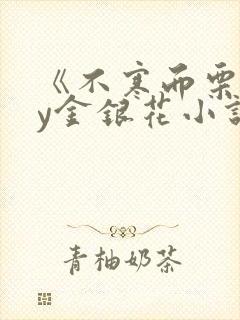 《不寒而栗
y金银花小说
青柚奶茶